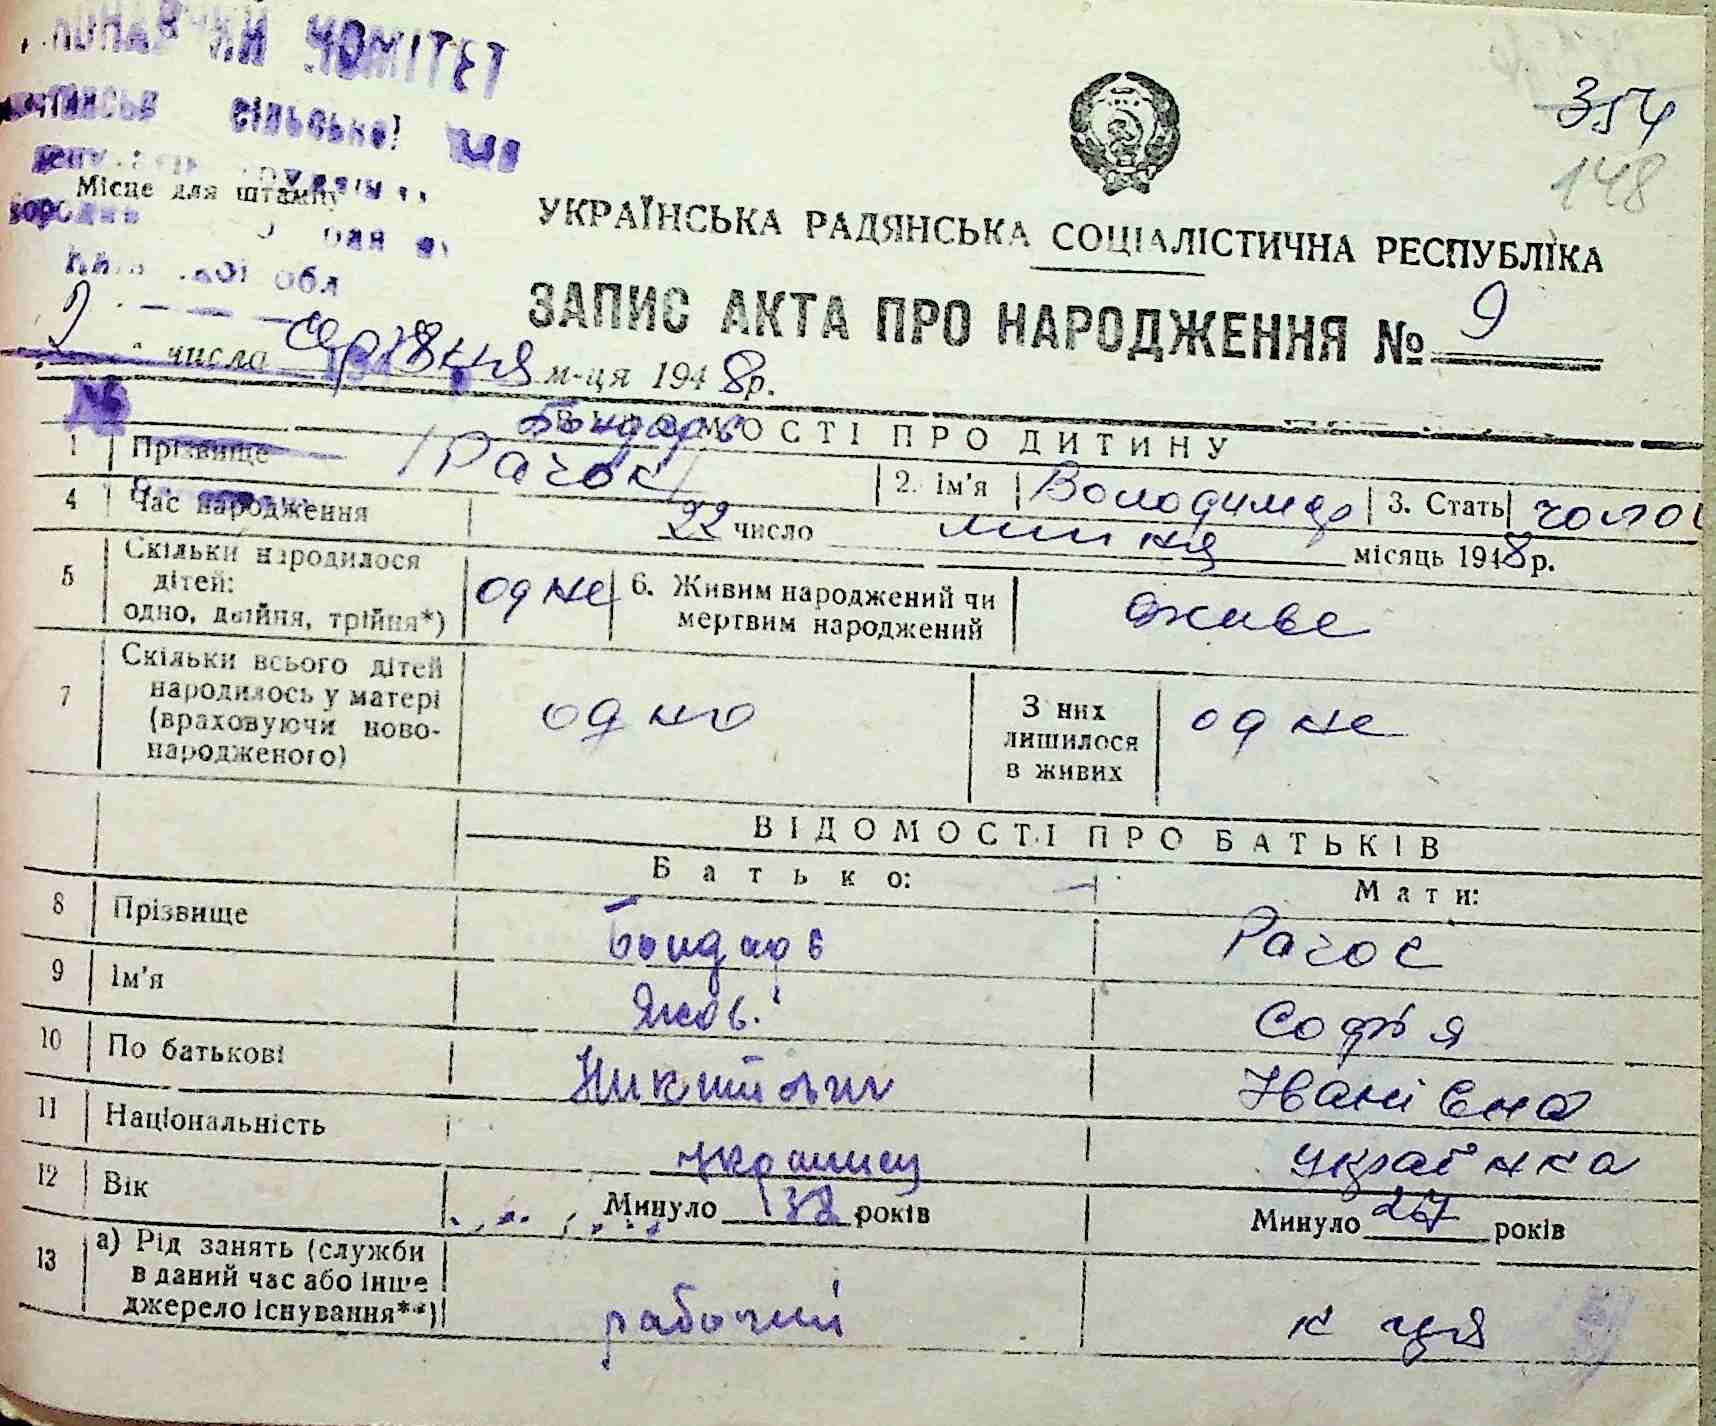 КОМІТЕТ
сільської
354
148
Місце для штампу
УКРАЇНСЬКА РАДЯНСЬКА СОЦІАЛІСТИЧНА РЕСПУБЛІКА
обл
ЗАПИС АКТА ПРО НАРОДЖЕННЯ № 9
числа серпня м-ця 1948р.
Бондарь
ВІДОМОСТІ ПРО ДИТИНУ
1 Прізвище /Рачок/ 2. Ім'я Володимер 3. Стать чолові
4 Час народження 22 число липня місяць 1948р.
5 Скільки народилося
дітей:
одно, двійня, трійня*) одне 6. Живим народжений чи
мертвим народжений живе
7 Скільки всього дітей
народилось у матері
(враховуючи ново-
народженого) одно З них
лишилося
в живих одне
ВІДОМОСТІ ПРО БАТЬКІВ
Батько: Мати:
8 Прізвище Бондарь Рачок
9 Ім'я Яков Софія
10 По батькові Никитович Іванівна
11 Національність украинец українка
12 Вік Минуло 32 років Минуло 27 років
13 а) Рід занять (служби
в даний час або інше
джерело існування**) рабочий к ця